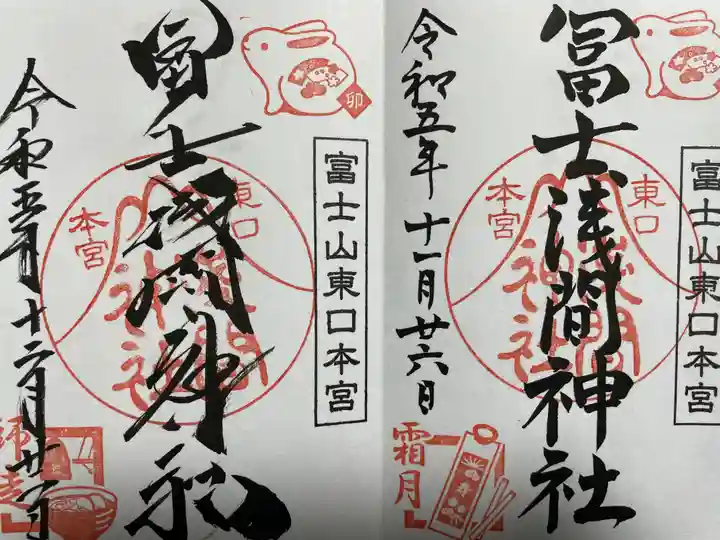 冨士浅間神社
富士山東口本宮
東口
本宮
浅間
神社
令和五年十一月廿六日
霜月
冨士浅間神社
富士山東口本宮
卯
東口
本宮
浅間
神社
令和五年十二月廿
師走